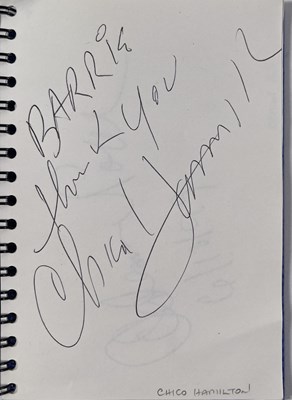 BARRIE
thank you
Chico Hamil
CHICO HAMILTON